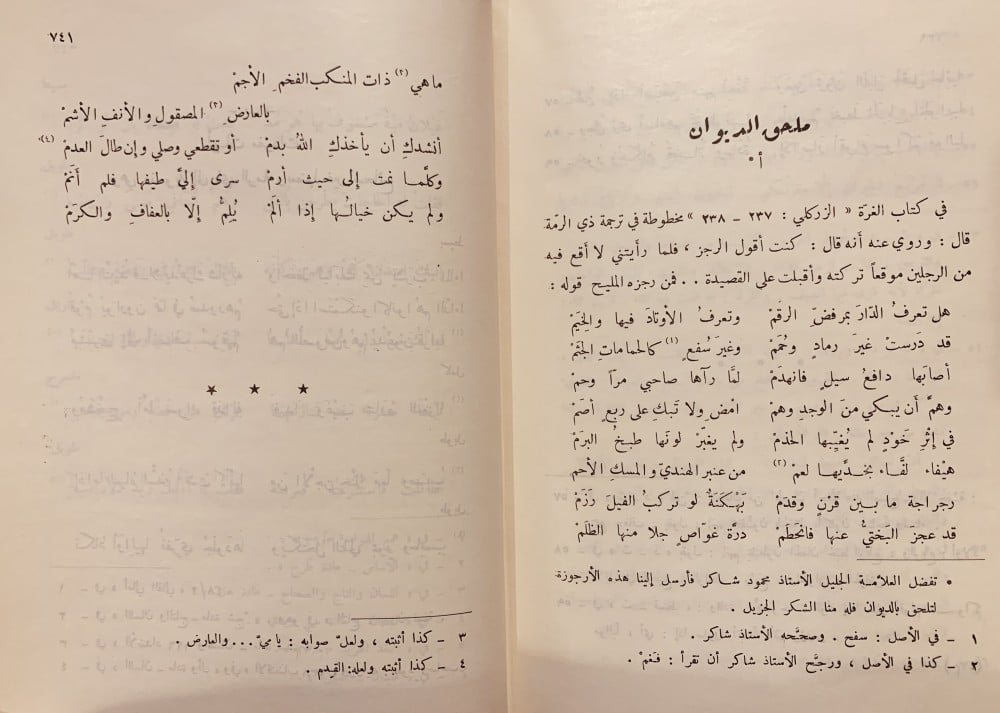 ملحق الديوان
أ*
في كتاب الغرة « الزركلي : ٢٣٧ – ٢٣٨ » مخطوطة في ترجمة ذي الرمّة
قال : وروي عنه أنه قال : كنت أقول الرجز ، فلما رأيتني لا أقع فيه
من الرجلين موقعاً تركته وأقبلت على القصيدة . . فمن رجزه المليح قوله :
هل تعرفُ الدّارَ بمرفضِّ الرقمْ وتعرفُ الأوتادَ فيها والخِيَمْ
قد دَرستْ غيرَ رمادٍ وحُممْ وغيرَ سُفعٍ (١) كالحماماتِ الجثمْ
أصابَها دافعُ سيلٍ فانهدَمْ لمَّا رآها صاحبي مرّاً وحمْ
وهمَّ أن يبكي منَ الوجدِ وهمْ امْضِ ولا تَبكِ على ربعٍ أصَمْ
في إثْرِ خَوْدٍ لم يُغيِّبها الخدمْ ولم يغبّرْ لونَها طبخُ البرَمْ
هيْفاء لفَّاء بخدَّيهـا لعمْ (٢) من عنبر الهنديّ والمسكِ الأحم
رجراجة ما بـين قرْنٍ وقدَمْ بَهْكَنَةٌ لو تركبُ الفيلَ رَزَمْ
قد عجز البَختيُّ عنها فانحَطَمْ درَّة غوّاصٍ جلا منها الظلَمْ
* تفضل العلاّمـة الجليل الأستاذ محمود شـاكر فأرسل إلينا هذه الأرجوزة
لتلحق بالديوان فله منّا الشكر الجزيل .
١ – في الأصل : سفح . وصحّحه الأستاذ شاكر .
٢ – كذا في الأصل ، ورجّح الأستاذ شاكر أن تقرأ : فَـنَغمْ .
٧٤١
ما هي (٣) ذات المنكب الفخمِ الأجمْ
بالعارضِ (٣) المصقولِ والأنفِ الأشمْ
أنشدكِ أن يأخذكِ اللهُ بدمْ أو تقطعي وصلي وإن طالَ العدمْ (٤)
وكلَّمـا نمتُ إلى حيث أرمْ سرى إليَّ طيفها فلم أَنَمْ
ولم يكن خيالُـها إذا أَلَمْ يُلِمُّ إلّا بالعفافِ والكرَمْ
★ ★ ★
٣ – كذا أثبته ، ولعلّ صوابه : يا ميّ ... والعارض .
٤ – كذا أثبته ولعله: القِدم .